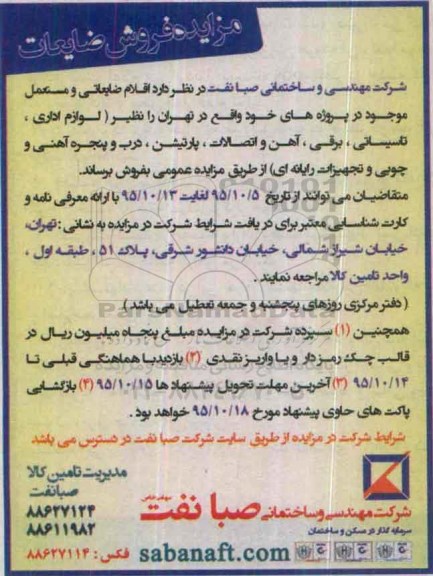 مزایده فروش ضایعات
شرکت مهندسی و ساختمانی صبا نفت در نظر دارد اقلام ضایعاتی و مستعمل
موجود در پروژه های خود واقع در تهران را نظیر ( لوازم اداری ،
تاسیساتی ، برقی ، آهن و اتصالات ، پارتیشن ، درب و پنجره آهنی و
چوبی و تجهیزات رایانه ای) از طریق مزایده عمومی بفروش برساند.
متقاضیان می توانند از تاریخ ۹۵/۱۰/۵ لغایت ۹۵/۱۰/۱۳ با ارائه معرفی نامه و
کارت شناسایی معتبر برای دریافت شرایط شرکت در مزایده به نشانی : تهران،
خیابان شیراز شمالی، خیابان دانشور شرقی، پلاک ۵۱ ، طبقه اول ،
واحد تامین کالا مراجعه نمایند .
( دفتر مرکزی روزهای پنجشنبه و جمعه تعطیل می باشد )
همچنین (۱) سپرده شرکت در مزایده مبلغ پنجاه میلیون ریال در
قالب چک رمز دار و یا واریز نقدی (۲) بازدید با هماهنگی قبلی تا
۹۵/۱۰/۱۴ (۳) آخرین مهلت تحویل پیشنهاد ها ۹۵/۱۰/۱۵ (۴) بازگشایی
پاکت های حاوی پیشنهاد مورخ ۹۵/۱۰/۱۸ خواهد بود .
شرایط شرکت در مزایده از طریق سایت شرکت صبا نفت در دسترس می باشد
مدیریت تامین کالا
صبا نفت
۸۸۶۲۷۱۲۴
۸۸۶۱۱۹۸۲
فکس : ۸۸۶۲۷۱۱۴
شرکت مهندسی و ساختمانی صبا نفت سهامی خاص
سرمایه گذار در مسکن و ساختمان
sabanaft.com
ParsNamadData